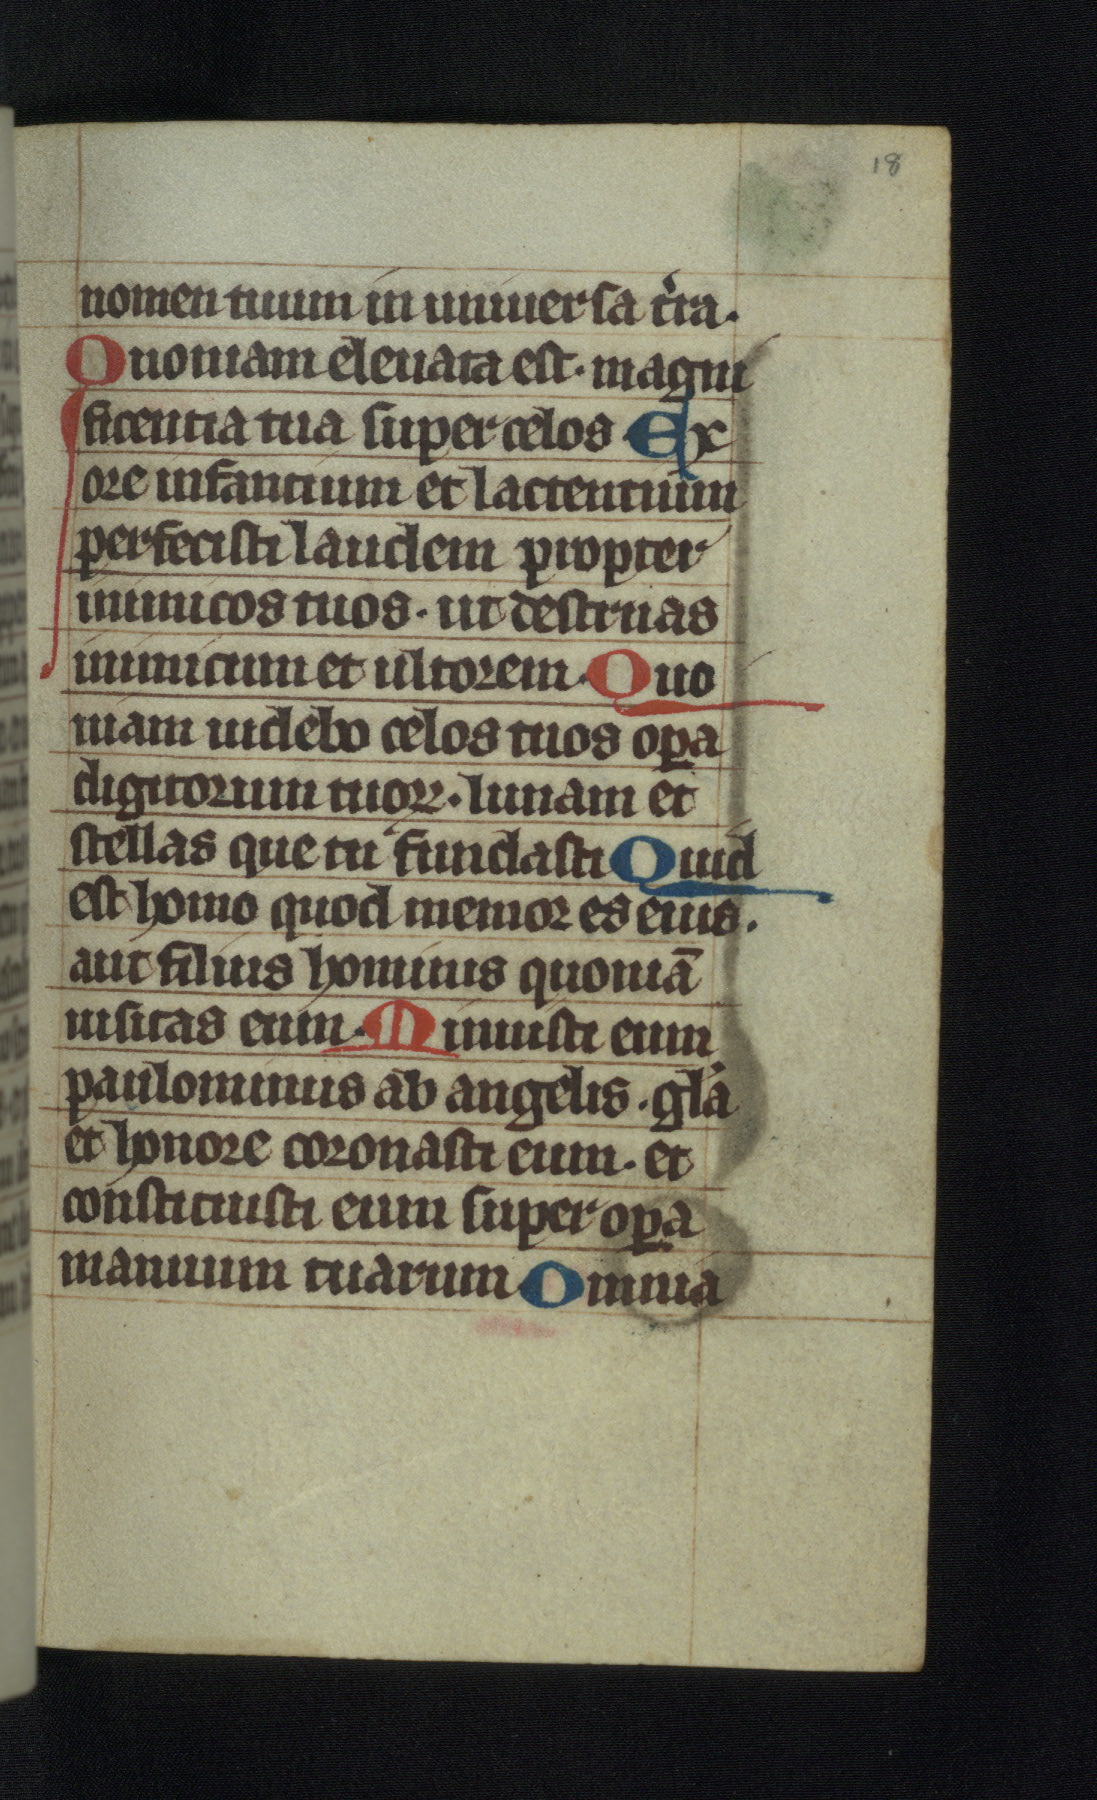 18
nomen tuum in uniuersa t'ra.
Quoniam eleuata est. magni
ficentia tua super celos Ex
ore infantium et lactentium
perfecisti laudem propter
inimicos tuos. ut destruas
inimicum et ultorem. Quo
niam uidebo celos tuos oꝑa
digitorum tuoꝝ. lunam et
stellas que tu fundasti Quid
est homo quod memor es eius.
aut filius hominis quoniā
uisitas eum. Minuisti eum
paulominus ab angelis. gl'a
et honore coronasti eum. et
constituisti eum super oꝑa
manuum tuarum. Omnia